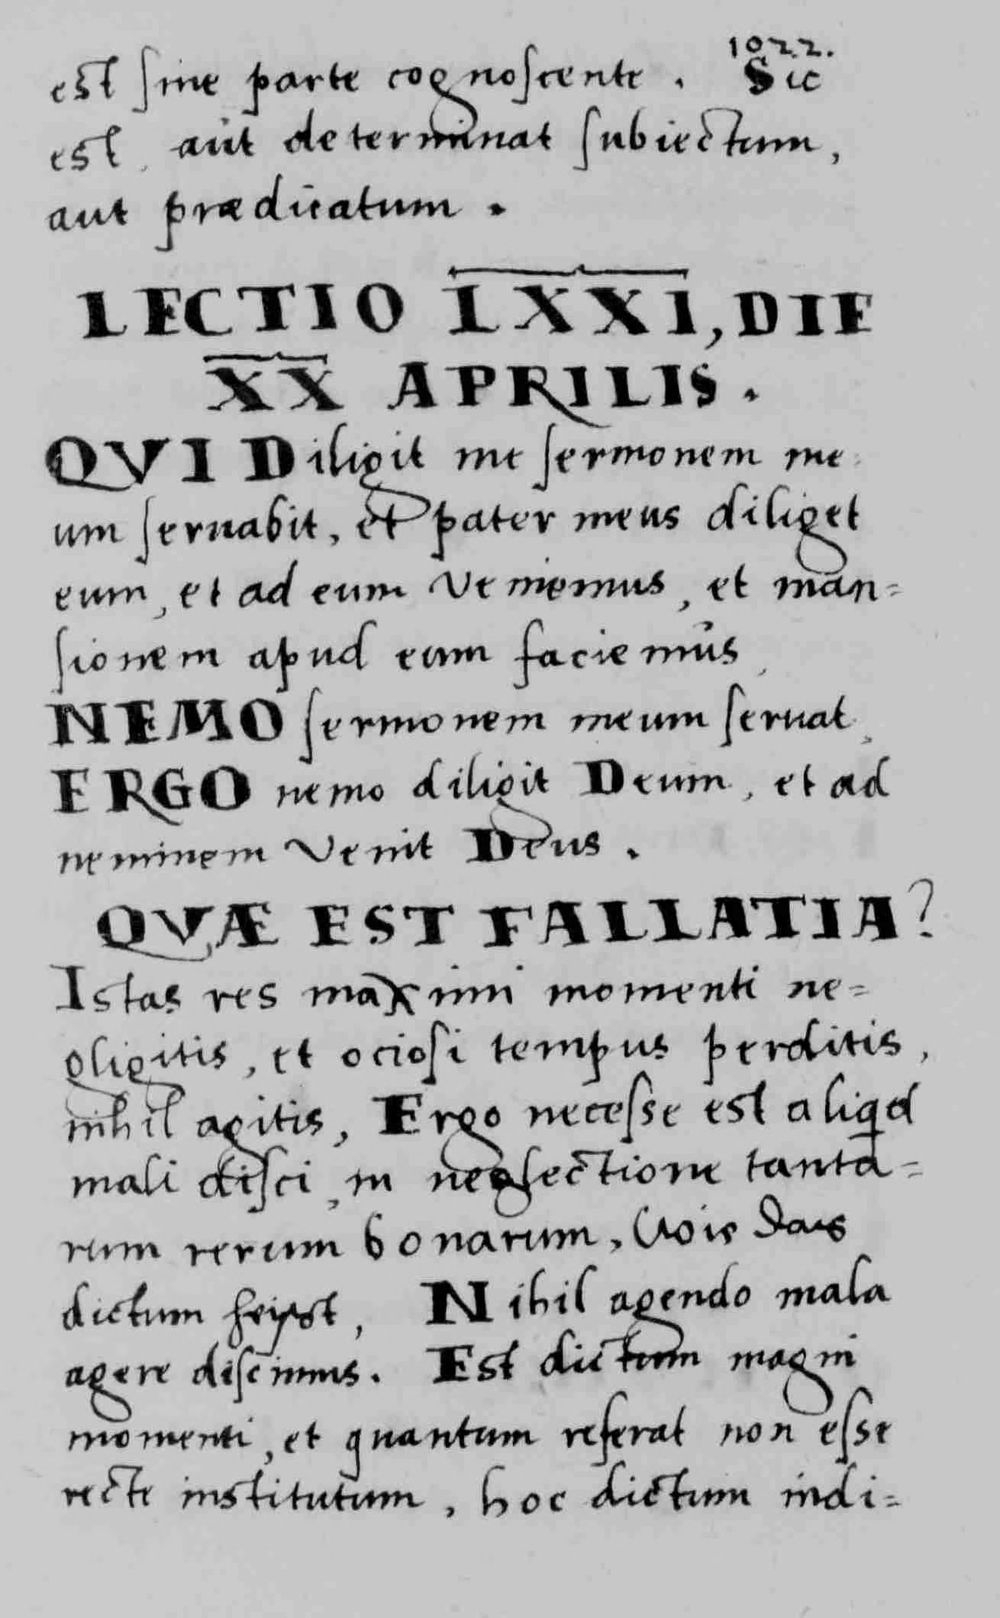 1022.
est sine parte cognoscente. Sic
est, aut determinat subiectum,
aut prædicatum.
LECTIO LXXI, DIE
XX APRILIS.
QVI Diligit me sermonem me
um seruabit, et pater meus diliget
eum, et ad eum veniemus, et man=
sionem apud eum faciemus,
NEMO sermonem meum seruat,
ERGO nemo diligit Deum, et ad
neminem venit Deus.
QVÆ EST FALLATIA?
Istas res maximi momenti ne=
gligitis, et ociosi tempus perditis,
nihil agitis, Ergo necesse est aliqd
mali disci, in neglectione tanta=
rum rerum bonarum, Wie das
dictum heijst, Nihil agendo mala
agere discimus. Est dictum magni
momenti, et quantum referat non esse
recte institutum, hoc dictum indi=